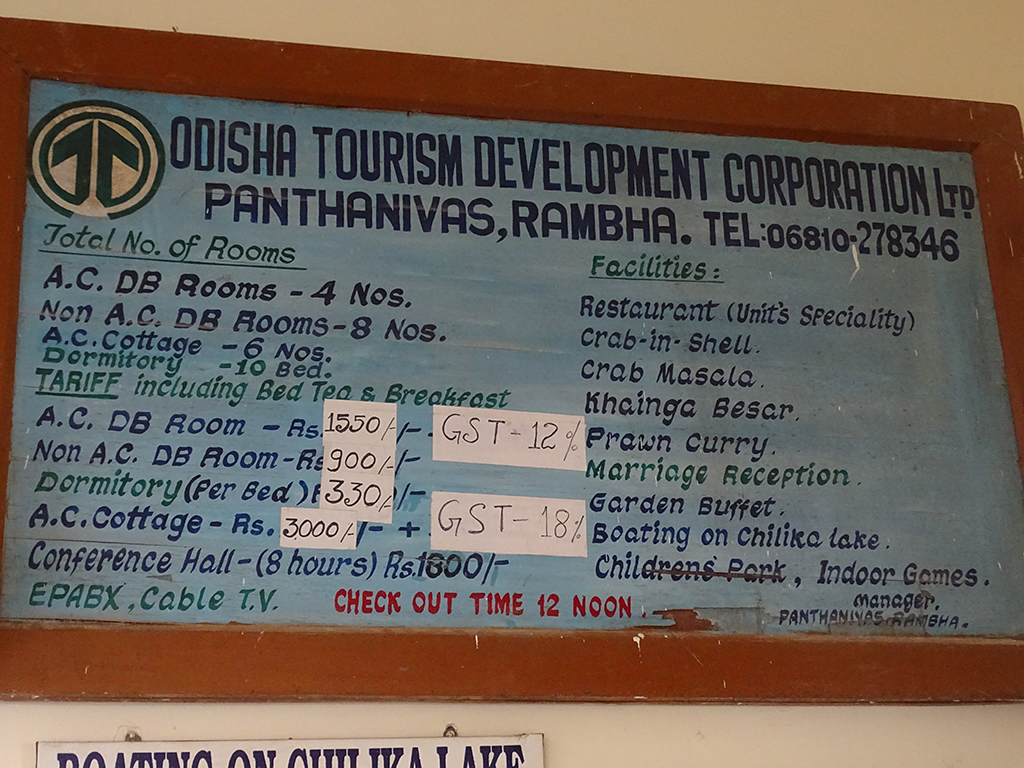 ODISHA TOURISM DEVELOPMENT CORPORATION LTD.
PANTHANIVAS, RAMBHA. TEL:06810-278346
Total No. of Rooms
A.C. DB Rooms - 4 Nos.
Non A.C. DB Rooms - 8 Nos.
A.C. Cottage - 6 Nos.
Dormitory - 10 Bed.
TARIFF including Bed Tea & Breakfast
A.C. DB Room - Rs. 1550/-/- GST - 12%
Non A.C. DB Room - Rs 900/-/-
Dormitory (Per Bed) 330/-/-
A.C. Cottage - Rs. 3000/-/- + GST - 18%
Conference Hall - (8 hours) Rs. 1800/-
EPABX, Cable T.V.
CHECK OUT TIME 12 NOON.
Facilities:
Restaurant (Unit's Speciality)
Crab-in-Shell.
Crab Masala.
Khainga Besar.
Prawn Curry.
Marriage Reception.
Garden Buffet.
Boating on Chilika lake.
Childrens Park, Indoor Games.
Manager.
PANTHANIVAS, RAMBHA.
BOATING ON CHILIKA LAKE